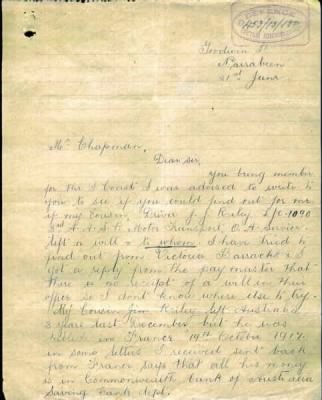 DEFENCE
Goodwin St
Narrabeen
21st June
Mr Chapman,
Dear sir,
you being member
for the S Coast I was advised to write to
you to see if you could find out for me
if my Cousin, Driver J. J. Riley
3rd A. A. S. C. Motor Transport,
left a will & to whom, I have tried to
find out from Victoria Barracks &
got a reply from the pay master that
there is no receipt of a will in their
office so I don't know where else to try
My Cousin Jim Riley left Australia
3 years last December but he was
killed in France 19th October 1917
in some letters I received sent back
from France says that all his money
is in Commonwealth bank of Australia
Saving Bank dept.